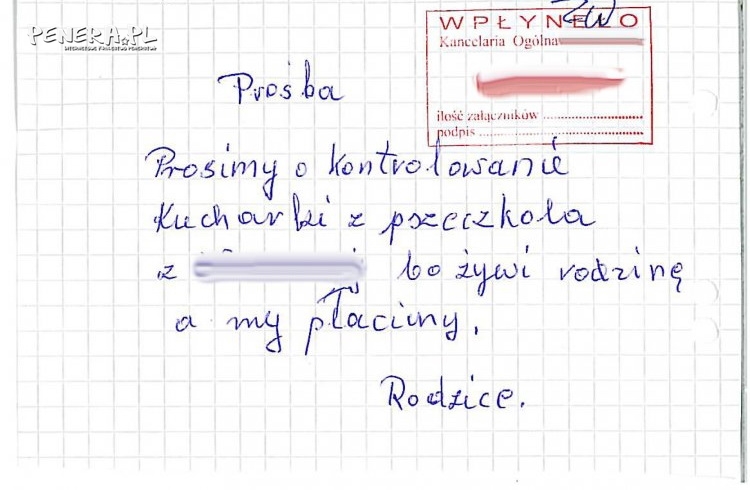 PENERA.PL
WPŁYNĘŁO
Kancelaria Ogólna
ilość załączników
podpis
Prośba
Prosimy o kontrolowanie
Kucharki z pszeczkola
z bo żywi rodzinę
a my płacimy.
Rodzice.